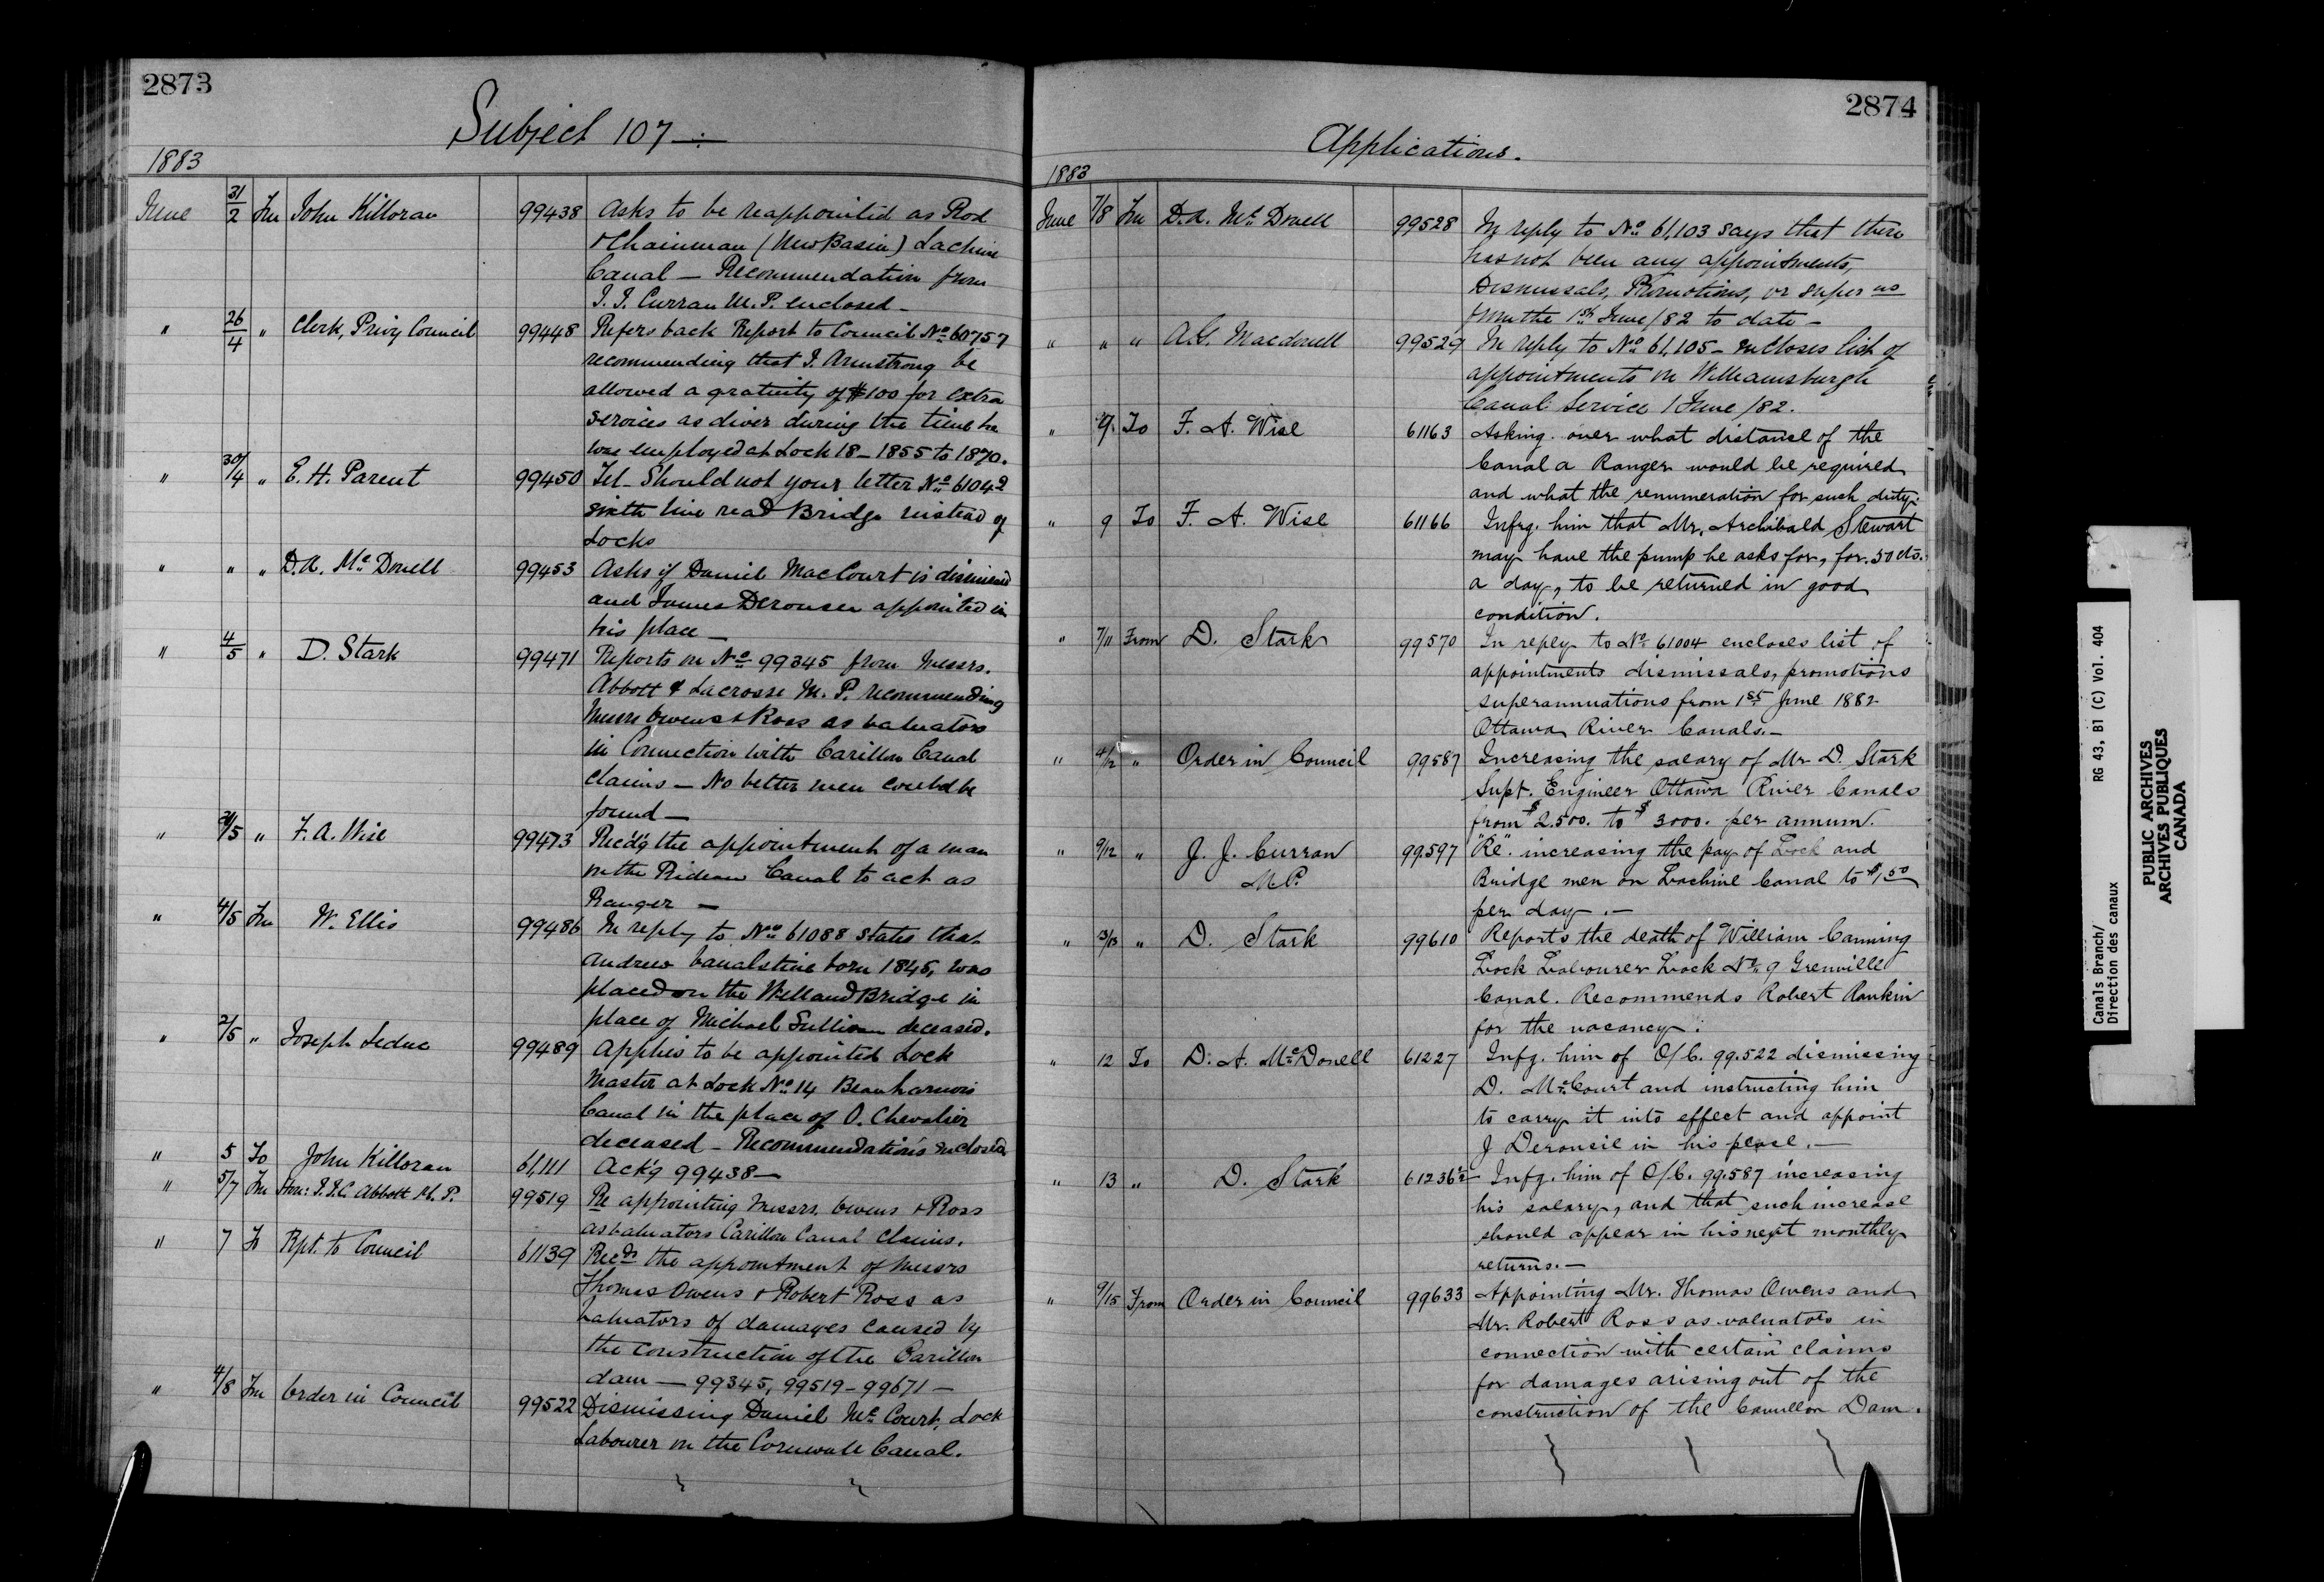 2873
Subject 107 —
1883
June 31/2 Fm John Killoran 99438 Asks to be reappointed as Rod
& Chainman (New Basin) Lachine
Canal — Recommendation from
J. J. Curran M.P. enclosed —
" 26/4 " Clerk, Privy Council 99448 Refers back Report to Council No 60757
recommending that J. Armstrong be
allowed a gratuity of $100 for extra
services as diver during the time he
was employed at Lock 18 — 1855 to 1870.
" 30/4 " E. H. Parent 99450 Tel. Should not your letter No 61042
sixth line read Bridge instead of
Locks
" " " D. A. McDonell 99453 Asks if Daniel MacCourt is dismissed
and James Derousee appointed in
his place —
" 4/5 " D. Stark 99471 Reports on No 99345 from Messrs.
Abbott & Lacrosse M. P. recommending
Messrs Owens & Ross as valuators
in Connection with Carillon Canal
claims — No better men could be
found —
" /5 " F. A. Wise 99473 Rec'd'g the appointment of a man
on the Rideau Canal to act as
Ranger —
" 4/5 Fm W. Ellis 99486 In reply to No 61088 states that
Andrew Vanalstine born 1845, was
placed on the Welland Bridge in
place of Michael Sullivan deceased.
" 2/5 " Joseph Leduc 99489 Applies to be appointed Lock
Master at Lock No 14 Beauharnois
Canal in the place of O. Chevalier
deceased — Recommendations enclosed
" 5 To John Killoran 61,111 Ack'g 99438 —
" 5/7 Fm Hon: J. J. C. Abbott M. P. 99519 Re appointing Messrs. Owens & Ross
as valuators Carillon Canal Claims.
" 7 To Rpt. to Council 61139 Recds the appointment of Messrs
Thomas Owens & Robert Ross as
valuators of damages caused by
the construction of the Carillon
dam — 99345, 99519 — 99671 —
" 4/8 Fm Order in Council 99522 Dismissing Daniel McCourt, Lock
Labourer on the Cornwall Canal.
2874
Applications.
1883
June 7/8 Fm D. A. McDonell 99528 In reply to No 61,103 says that there
has not been any appointments,
Dismissals, Promotions, or super ns
from the 1st June/82 to date —
" " " A. G. Macdonell 99529 In reply to No 61,105 — encloses list of
appointments on Williamsburgh
Canal Service 1 June/82.
" 9. To F. A. Wise 61163 Asking over what distance of the
Canal a Ranger would be required
and what the renumeration for such duty.
" 9 To F. A. Wise 61166 Infrg. him that Mr. Archibald Stewart
may have the pump he asks for, for 50 cts.
a day, to be returned in good
condition.
" 7/11 From D. Stark 99570 In reply to No 61004 encloses list of
appointments dismissals, promotions
superannuations from 1st June 1882
Ottawa River Canals. —
" 4/12 " Order in Council 99587 Increasing the salary of Mr D. Stark
Supt. Engineer Ottawa River Canals
from $2.500. to $3000. per annum.
" 9/12 " J. J. Curran 99597 "Re" increasing the pay of Lock and
M.P. Bridge men on Lachine Canal to $1.50
per day. —
" 13/13 " D. Stark 99610 Reports the death of William Canning
Lock Labourer Lock No 9 Grenville
Canal. Recommends Robert Rankin
for the vacancy.
" 12 To D. A. McDonell 61227 Infg. him of O/C. 99.522 dismissing
D. McCourt and instructing him
to carry it into effect and appoint
J Derousil in his place. —
" 13 " D. Stark 61236½ Infg. him of O/C. 99.587 increasing
his salary, and that such increase
should appear in his next monthly
returns. —
" 9/15 From Order in Council 99633 Appointing Mr. Thomas Owens and
Mr. Robert Ross as valuators in
connection with certain claims
for damages arising out of the
construction of the Carillon Dam.
Canals Branch/ RG 43, B1 (C) Vol. 404
Direction des canaux
PUBLIC ARCHIVES
ARCHIVES PUBLIQUES
CANADA